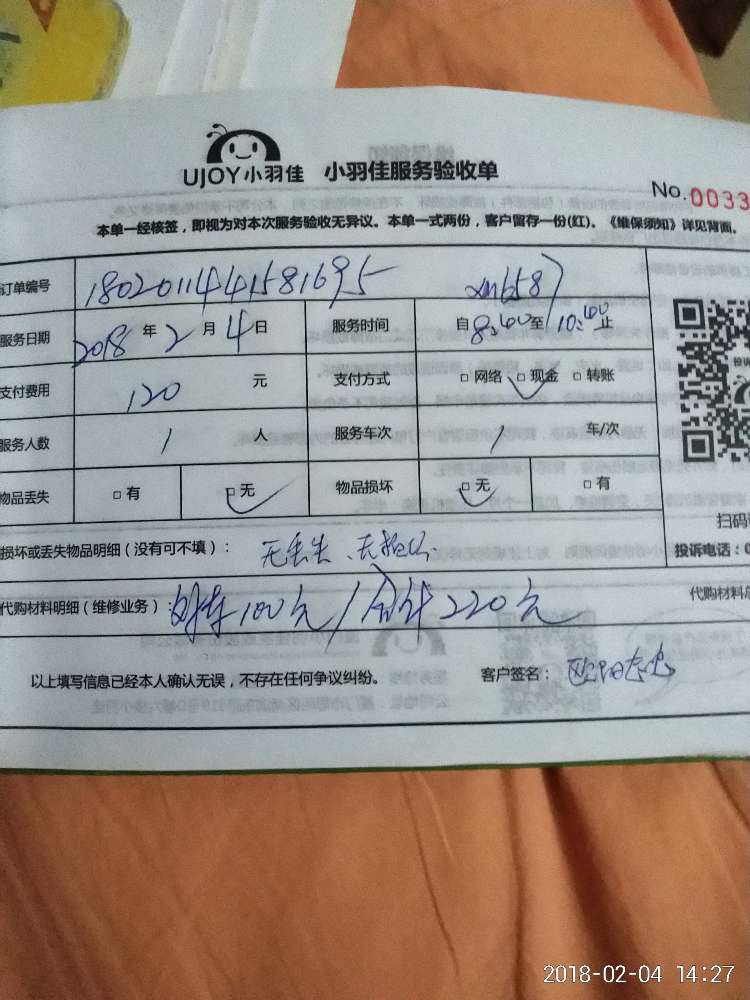 UJOY小羽佳 小羽佳服务验收单
No.0033
本单一经核签，即视为对本次服务验收无异议。本单一式两份，客户留存一份(红)。《维保须知》详见背面。
订单编号 1802011441581695 xm6587
服务日期 2018 年 2 月 4 日 服务时间 自 8:00 至 10:00 止
支付费用 120 元 支付方式 □ 网络 □ 现金 □ 转账
服务人数 1 人 服务车次 1 车/次
物品丢失 □ 有 □ 无 物品损坏 □ 无 □ 有
扫码
损坏或丢失物品明细（没有可不填）： 无丢失、无损坏 投诉电话：0
代购材料明细（维修业务）： 100元/合计220元 代购材料总
以上填写信息已经本人确认无误，不存在任何争议纠纷。 客户签名： 欧阳
2018-02-04 14:27